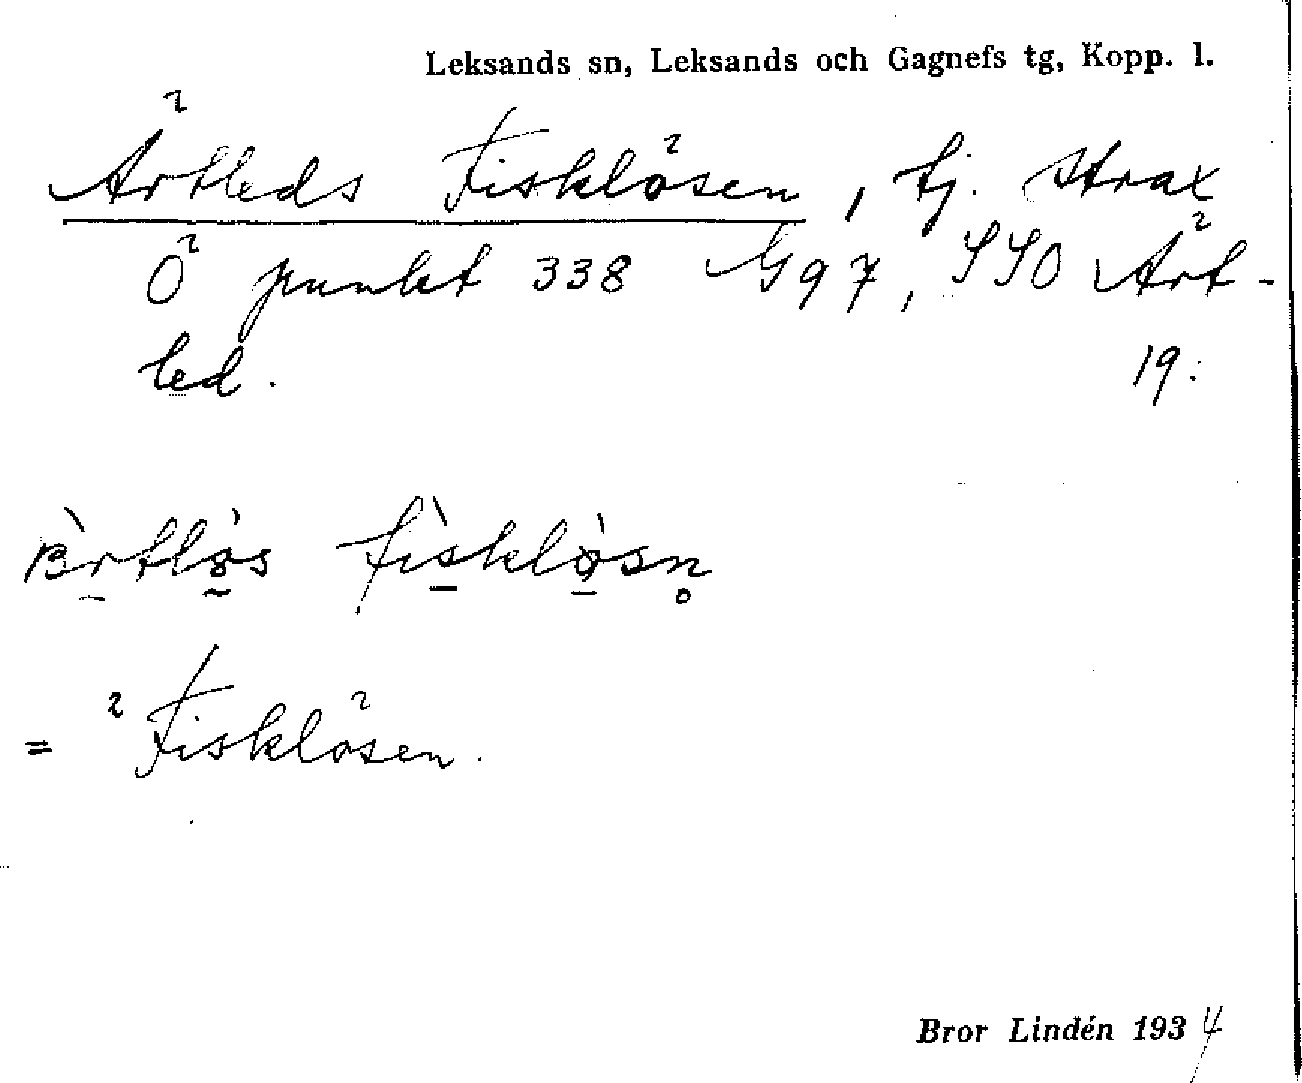 Leksands sn, Leksands och Gagnefs tg, Kopp. l.
Ärtleds Fisklösen, tj. strax
Ö punkt 338 G97, SSO Ärt-
led. 19:
fìsklò̱sn̥
= Fisklösen.
Bror Lindén 1934